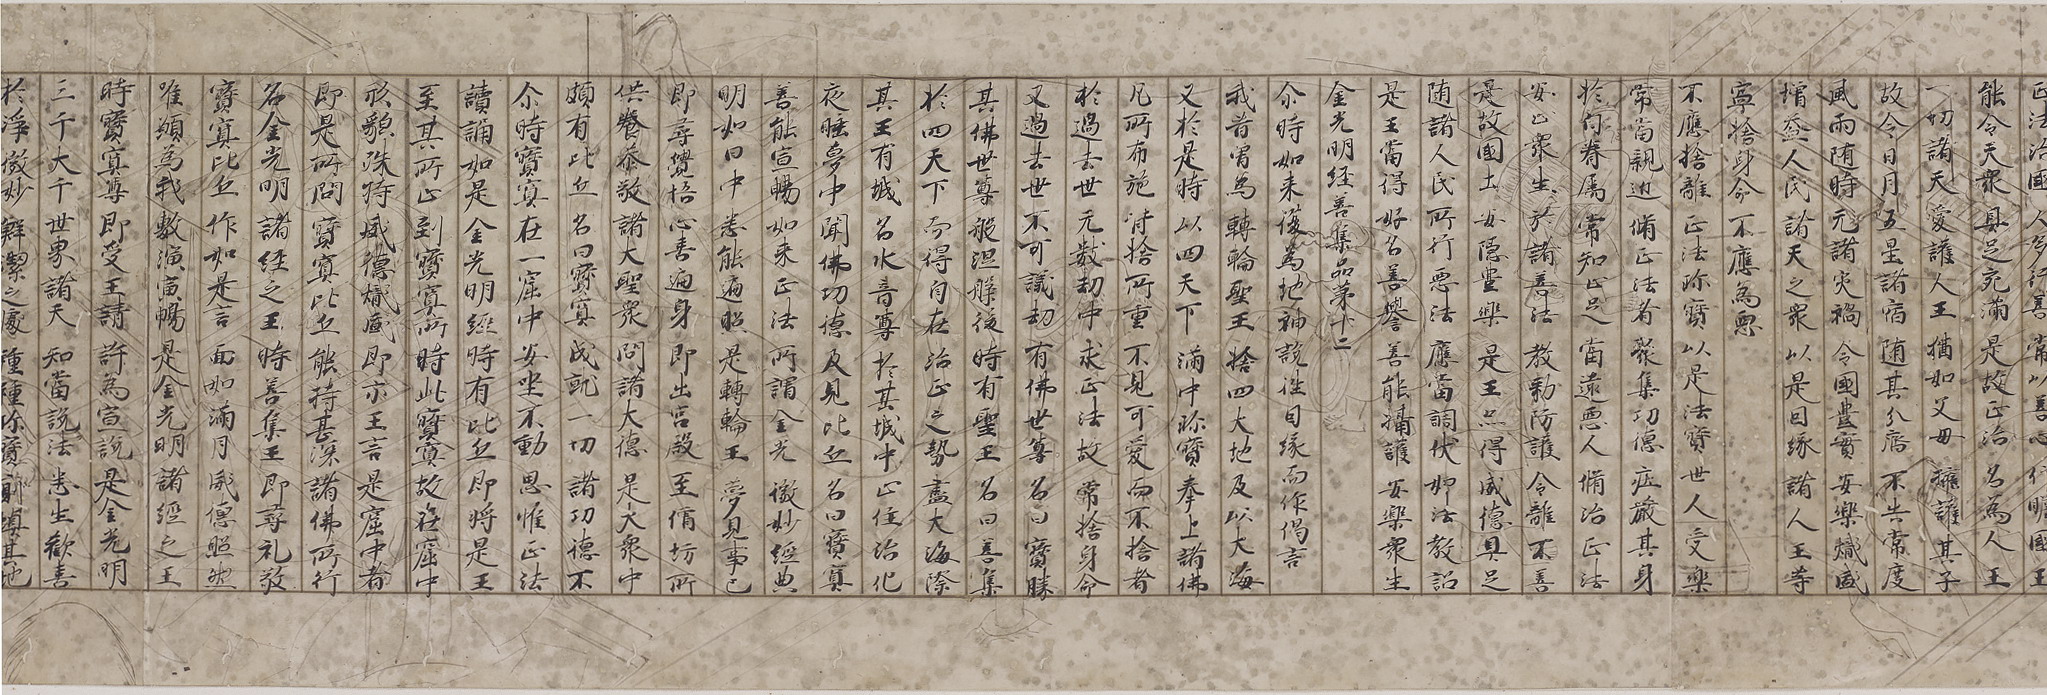 正法治國人多行善常以善心仰瞻國王
能令天衆具足充滿是故正治名為人王
一切諸天愛護人王猶如父母擁護其子
故令日月五星諸宿随其分齊不失常度
風雨随時无諸災禍令國豊實安樂熾盛
増益人民諸天之衆以是因緣諸人王等
寧捨身命不應為惡
不應捨離正法珎寶以是法寶世人受樂
常當親近脩正法者聚集功德庄嚴其身
於何眷屬常知止足當遠惡人脩治正法
安止衆生於諸善法教勑防護令離不善
是故國土安隱豊樂是王亦得威德具足
随諸人民所行悪法應當調伏如法教詔
是王當得好名善譽善能攝護安樂衆生
金光明經善集品第十二
尒時如来復為地神說往因緣而作偈言
我昔曽為轉輪聖王捨四大地及以大海
又於是時以四天下滿中珎寶奉上諸佛
凡所布施皆捨所重不見可愛而不捨者
於過去世无數劫中求正法故常捨身命
又過去世不可議劫有佛世尊名曰寶勝
其佛世尊般涅槃後時有聖王名曰善集
於四天下而得自在治正之勢盡大海際
其王有城名水音尊於其城中止住治化
夜睡夢中聞佛功德及見比丘名曰寶冥
善能宣暢如来正法所謂金光微妙經典
明如日中悉能遍照是轉輪王夢見事已
即尋覺悟心喜遍身即出宮殿至僧坊所
供養恭敬諸大聖衆問諸大德是大衆中
頗有比丘名曰寶冥成就一切諸功德不
尒時寶冥在一窟中安坐不動思惟正法
讀誦如是金光明經時有比丘即將是王
至其所止到寶冥所時此寶冥故在窟中
形貌殊特威德熾盛即示王言是窟中者
即是所問寶冥比丘能持甚深諸佛所行
名金光明諸經之王時善集王即尋礼敬
寶冥比丘作如是言面如滿月威德照然
唯願為我敷演宣暢是金光明諸經之王
時寶冥尊即受王請許為宣說是金光明
三千大千世界諸天知當說法悉生歡喜
於淨微妙鮮潔之處種種珎寶廁塡其地